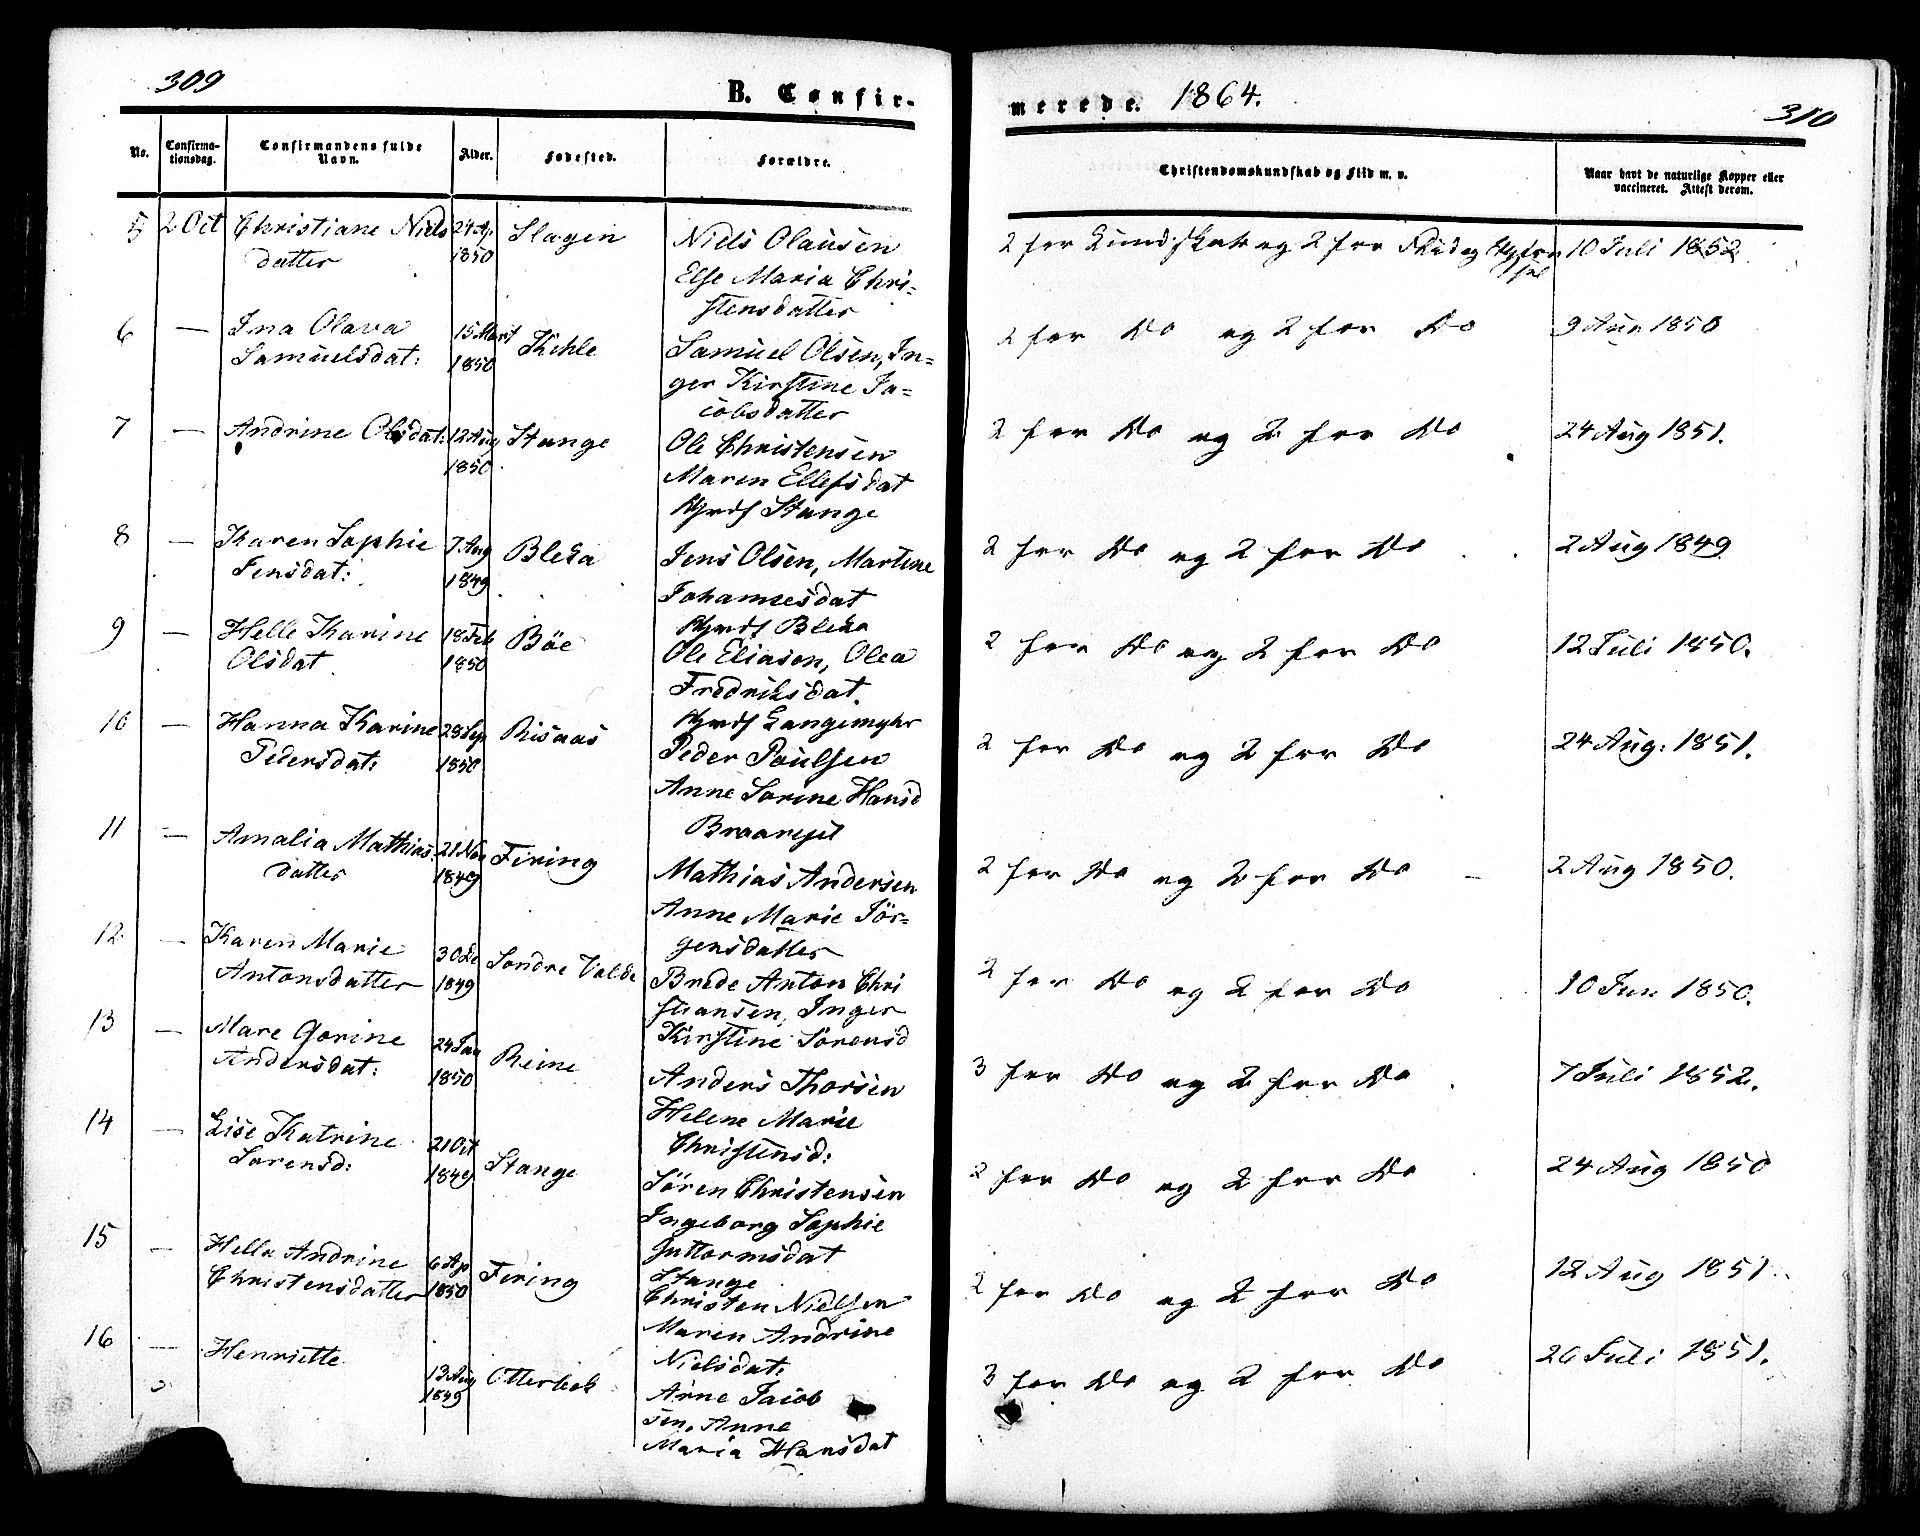 309
B. Confir-
No.
Confirma-
tionsdag.
Confirmandens fulde
Navn.
Alder.
Fødested.
Forældre.
5 2 Oct Christiane Niels 24 Ap Slagen Niels Olausen
datter 1850 Else Maria Chri-
stensdatter
6 — Ina Olava 15 Mart Kihle Samuel Olsen, In-
Samuelsdat: 1850 ger Kirstine Ja-
cobsdatter
7 — Andrine Olsdat: 12 Aug Stange Ole Christensen
1850 Maren Ellefsdat
Stange
8 — Karen Sophie 7 Aug Bleka Jens Olsen, Martine
Jensdat: 1849 Johannesdat
Bleka
9 — Helle Karine 18 Feb Böe Ole Eliason, Olea
Olsdat 1850 Fredriksdat.
Langemyhr
10 — Hanna Karine 28 Sep Risaas Peder Paulsen
Pedersdat: 1850 Anne Sorine Hansd
11 — Amalia Mathias 21 Nov Firing Mathias Andersen
datter 1849 Anne Marie Jör-
gensdatter
12 — Karen Marie 30 De Söndre Valde Brede Anton Chri
Antonsdatter 1849 stiansen, Inger
Kirstine Sörensd
13 — Mare Gorine 24 Jan Reine Anders Thorsen
Andersdat: 1850 Helene Marie
Christensd:
14 — Lise Katrine 21 Oct Stange Sören Christensen
Sorensd: 1849 Ingeborg Sophie
Guttormsdat
Stange
15 — Hella Andrine 6 Ap Firing Christen Nielsen
Christensdatter 1850 Maren Andrine
Nielsdat:
16 — Henriette 13 Aug Otterbek Arne Jacob
1849 sen, Anne
Maria Hansdat
merede. 1864.
310
Christendomskundskab og Flid m. v.
Naar havt de naturlige Kopper eller
vaccineret. Attest derom.
2 for Kundskab og 2 for Flid og 10 Juli 1852
2 for Do og 2 for Do 9 Aug 1850
2 for Do og 2 for Do 24 Aug 1851.
2 for Do og 2 for Do 2 Aug 1849
2 for Do og 2 for Do 12 Juli 1850.
2 for Do og 2 for Do 24 Aug: 1851.
2 for Do og 2 for Do — 2 Aug 1850.
2 for Do og 2 for Do 10 Jun 1850.
3 for Do og 2 for Do 7 Juli 1852.
2 for Do og 2 for Do 24 Aug 1850
2 for Do og 2 for Do 12 Aug 1851
3 for Do og 2 for Do 26 Juli 1851.